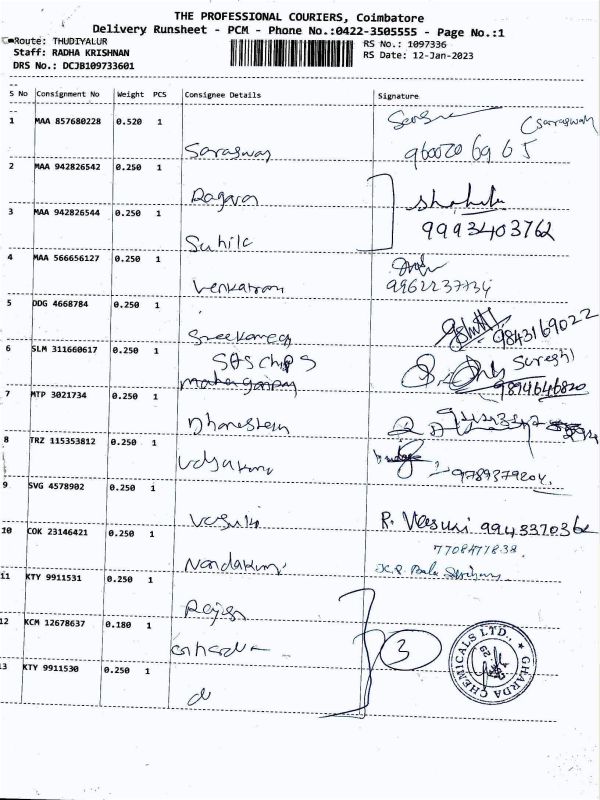 THE PROFESSIONAL COURIERS, Coimbatore
Delivery Runsheet - PCM - Phone No.:0422-3505555 - Page No.:1
Route: THUDIYALUR
Staff: RADHA KRISHNAN
DRS No.: DCJB109733601
RS No.: 1097336
RS Date: 12-Jan-2023
S No Consignment No Weight PCS Consignee Details Signature
1 MAA 857680228 0.520 1
(Saraswathy
Saraswathy 9600206965
2 MAA 942826542 0.250 1
3 MAA 942826544 0.250 1
9993403762
Suhila
4 MAA 566656127 0.250 1
Venkatram
5 DDG 4668784 0.250 1
9843169022
6 SLM 311660617 0.250 1
SAS chips
Sureshi
9894646820
7 MTP 3021734 0.250 1
8 TRZ 115353812 0.250 1
9789379204
9 SVG 4578902 0.250 1
Vasuki R. Vasuki 9943370362
10 COK 23146421 0.250 1
7708477838.
Nandakumar
11 KTY 9911531 0.250 1
Rajesh
12 KCM 12678637 0.180 1
3
GHARDA CHEMICALS LTD.,
13 KTY 9911530 0.250 1